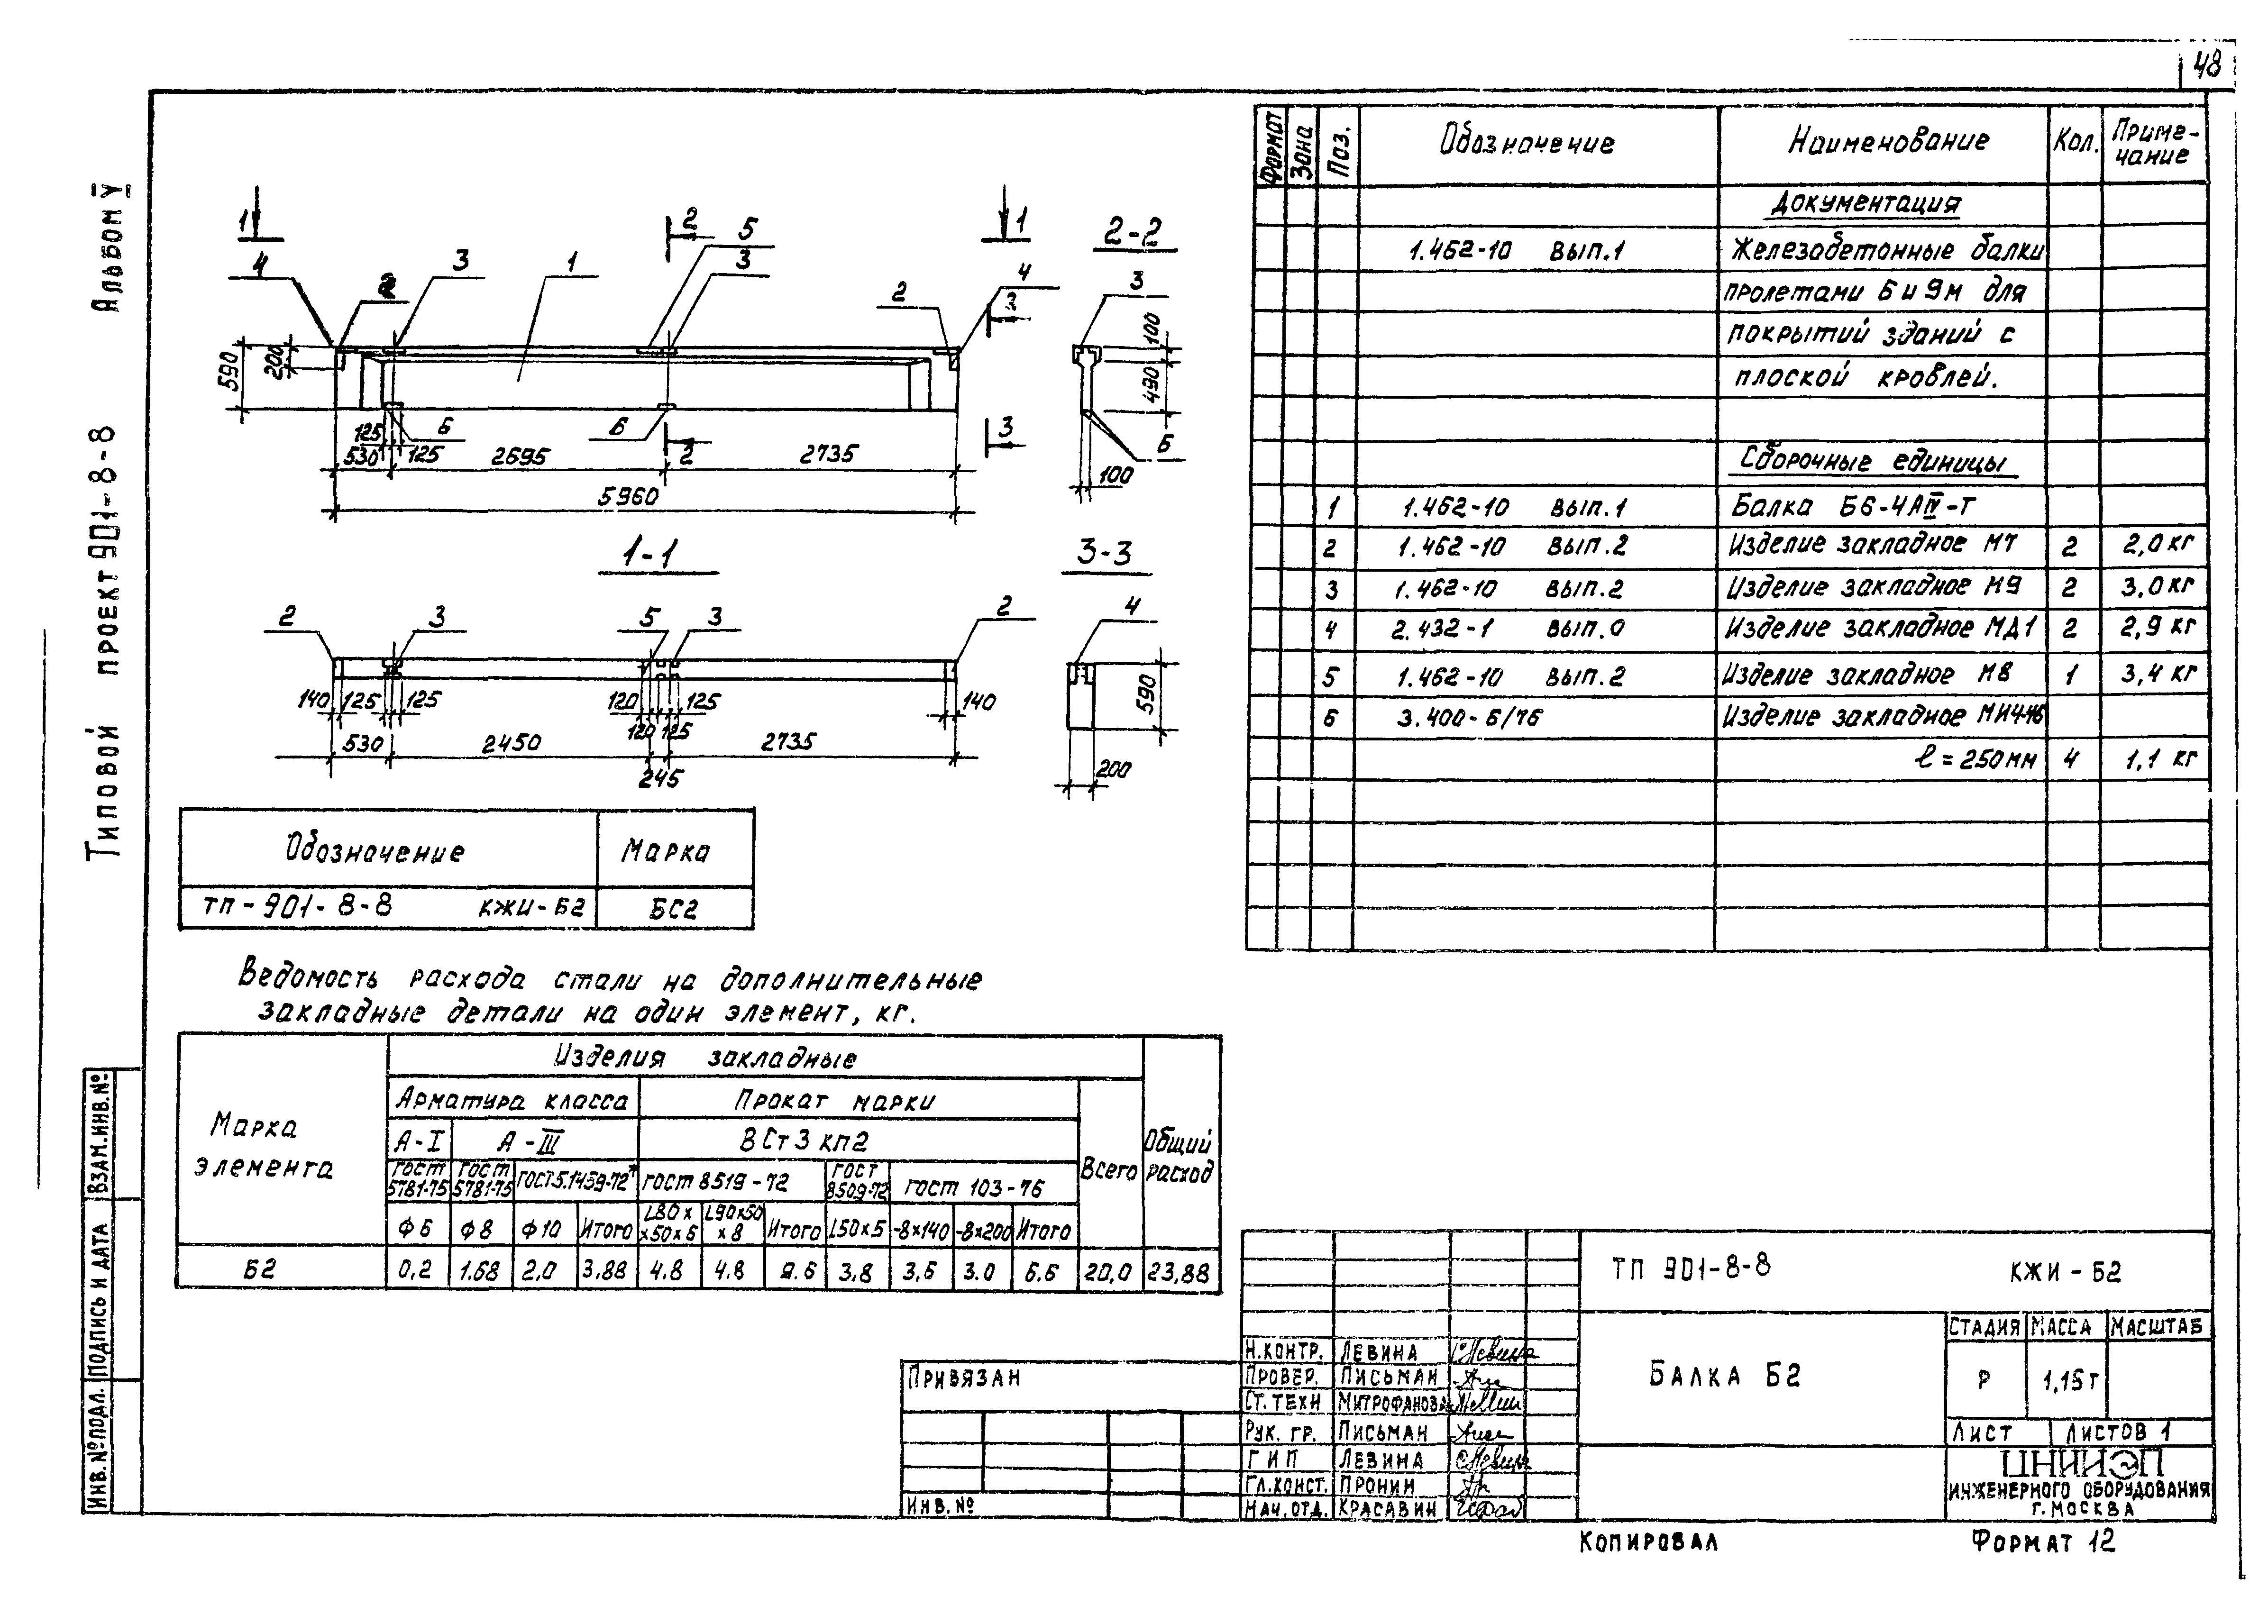 48
Альбом V
Типовой проект 901-8-8
Взам.инв.№
Подпись и дата
Инв.№подл.
1
1
2
5
3
4
2
3
1
2
4
3
590
200
6
6
125
125
530
2695
2
2735
3
5960
2-2
3
100
490
6
100
1-1
2
3
5
3
2
140
125
125
120
125
140
120
125
530
2450
2735
245
3-3
4
590
200
Обозначение Марка
ТП-901-8-8 КЖИ-Б2 БС2
Ведомость расхода стали на дополнительные
закладные детали на один элемент, кг.
Марка элемента
Изделия закладные
Общий расход
Арматура класса Прокат марки Всего
А-I А-III ВСт3кп2
ГОСТ 5781-75 ГОСТ 5781-75 ГОСТ5.1459-72* ГОСТ 8519-72 ГОСТ 8509-72 ГОСТ 103-76
Ф6 Ф8 Ф10 Итого L80х х50х6 L90х50 х8 Итого L50х5 -8х140 -8х200 Итого
Б2 0,2 1.68 2,0 3,88 4.8 4.8 9.6 3,8 3,6 3.0 6.6 20,0 23,88
Формат Зона Поз. Обозначение Наименование Кол. Приме-чание
Документация
1.462-10 Вып.1 Железобетонные балки
пролетами 6 и 9м для
покрытий зданий с
плоской кровлей.
Сборочные единицы
1 1.462-10 Вып.1 Балка Б6-4АIV-Т
2 1.462-10 Вып.2 Изделие закладное М7 2 2,0кг
3 1.462-10 Вып.2 Изделие закладное М9 2 3,0кг
4 2.432-1 Вып.0 Изделие закладное МД1 2 2,9 кг
5 1.462-10 Вып.2 Изделие закладное М8 1 3,4 кг
6 3.400-6/76 Изделие закладное МИ4-46
ℓ=250мм 4 1,1 кг
ТП 901-8-8 КЖИ-Б2
Балка Б2
Стадия Масса Масштаб
Р 1,15т
Лист Листов 1
ЦНИИЭП
инженерного оборудования
г.Москва
Н.контр. Левина
Провер. Письман
Ст.техн Митрофанова
Рук. гр. Письман
ГИП Левина
Гл.конст. Пронин
Нач.отд. Красавин
Привязан
Инв.№
Копировал
Формат 12